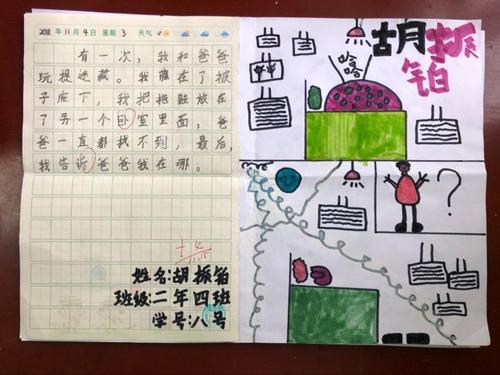 年11月4日 星期3 天气
有一次，我和爸爸
玩捉迷藏。我藏在了被
子底下，我把拖鞋放在
了另一个卧室里面，爸
爸一直都找不到，最后，
我告诉爸爸我在哪。
11.15
姓名:胡振铂
班级:二年四班
学号:八号
胡振
铂
哈
哈
?